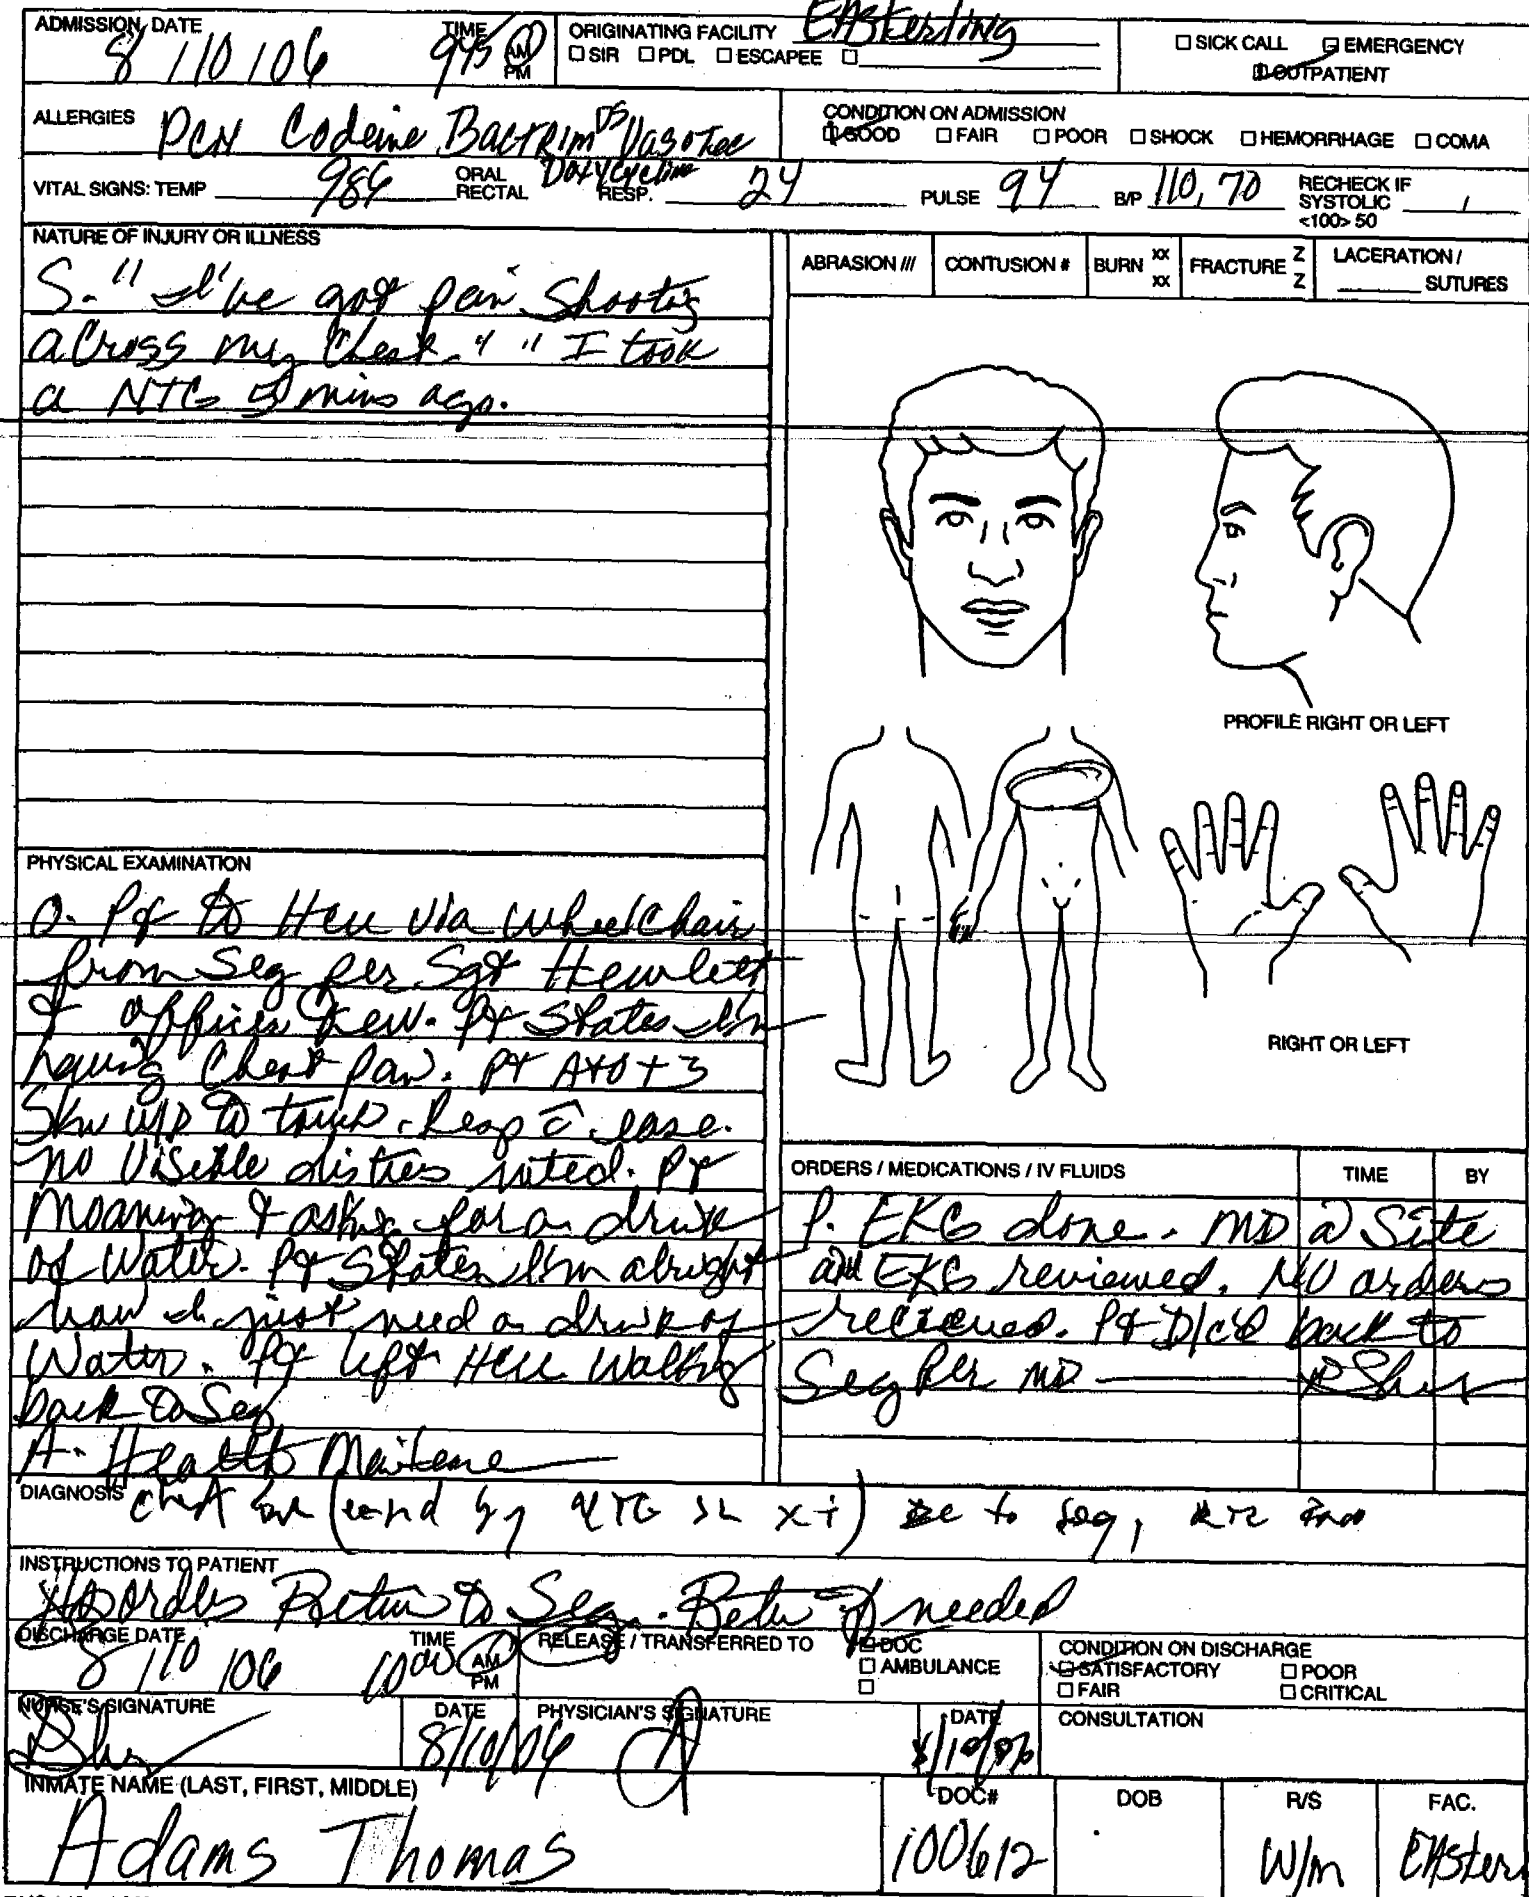 ADMISSION DATE 8/10/06 TIME 945 AM PM ORIGINATING FACILITY EASterling
□ SIR □ PDL □ ESCAPEE □
□ SICK CALL □ EMERGENCY
□ OUTPATIENT
ALLERGIES PCN Codeine Bactrim DS Vasotec
Doxycycline
CONDITION ON ADMISSION
□ GOOD □ FAIR □ POOR □ SHOCK □ HEMORRHAGE □ COMA
VITAL SIGNS: TEMP 986 ORAL RECTAL RESP. 24 PULSE 94 B/P 110, 70 RECHECK IF SYSTOLIC <100> 50 /
NATURE OF INJURY OR ILLNESS
S. " I've got pain shooting
across my chest." " I took
a NTG 5 mins ago.
ABRASION /// CONTUSION # BURN xx xx FRACTURE Z Z LACERATION / SUTURES
PROFILE RIGHT OR LEFT
RIGHT OR LEFT
PHYSICAL EXAMINATION
O. Pt to Hcu via wheelchair
from Seg per Sgt Hewlett
& officer. Pt States I'm
having Chest pain. Pt A+O+3
Skn w/D to touch. Resp c̄ ease.
no Visible distress noted. Pt
Moaning & asking for a drink
of Water. Pt States I'm alright
now I just need a drink of
Water. Pt left HCU Walking
back to Seg
A. Health
ORDERS / MEDICATIONS / IV FLUIDS TIME BY
P. EKG done. MD @ Site
and EKG reviewed. NO orders
recieved. Pt D/c'd back to
Seg Per MD
DIAGNOSIS to seg,
INSTRUCTIONS TO PATIENT
Return to Seg. Return if needed
DISCHARGE DATE 8/10/06 TIME 1000 AM PM RELEASE / TRANSFERRED TO □ DOC
□ AMBULANCE
□
CONDITION ON DISCHARGE
□ SATISFACTORY □ POOR
□ FAIR □ CRITICAL
NURSE'S SIGNATURE DATE 8/10/06 PHYSICIAN'S SIGNATURE DATE 8/10/06 CONSULTATION
INMATE NAME (LAST, FIRST, MIDDLE) DOC# DOB R/S FAC.
Adams Thomas 100612 W/m EAster